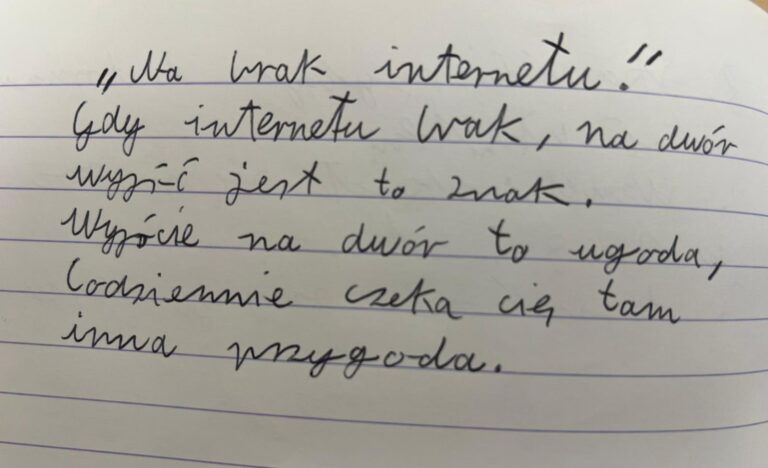 „Na brak internetu.”
Gdy internetu brak, na dwór
wyjść jest to znak.
Wyjście na dwór to ugoda,
Codziennie czeka cię tam
inna przygoda.